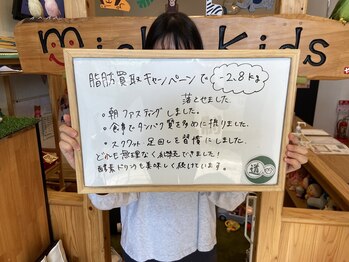 michi Kids
脂肪買取キャンペーンで -2.8kg
落とせました
・朝ファスティングしました。
・食事でタンパク質を多めに摂りました。
・スクワット 足回しを習慣にしました。
どれも無理なく継続できました!
酵素ドリンクも美味しく続けています。
道